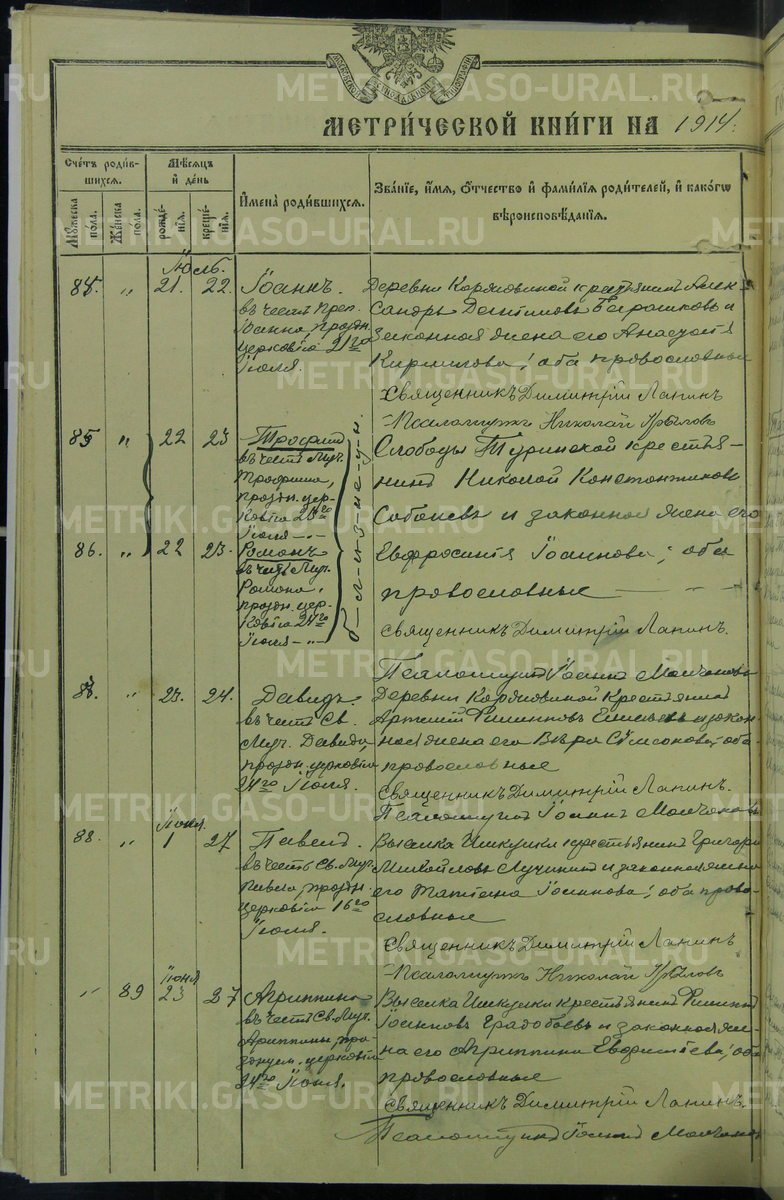 МЕТРИ́ЧЕСКОЙ КНИ́ГИ НА 1914.
Сче́тъ роди́вшихся.
Му́жеска по́ла.
Же́нска по́ла.
Мѣ́сяцъ и де́нь
рожде́нія.
креще́нія.
И҆мена̀ роди́вшихся.
Зва́нїе, и҆́мя, ѻ҆́тчество и҆ фами́лїя роди́телей, и҆ како́гѡ
вѣроисповѣ́данїя.
Іюль.
84. " 21. 22.
Іоаннъ.
въ честь Преп.
Іоанна, праздн.
церковію 21го
Іюля.
крестьянинъ Алек-
сандръ
законная жена его Анастасія
Кириллова; оба православные
Священникъ Димитрій Лапинъ
Псаломщикъ Николай Крыловъ
85 " 22 23
Трофимъ
въ честь Муч.
Трофима,
праздн. цер-
ковію 23го
Іюля
Слободы Туринской крестья-
нинъ Николай Константиновъ
и законная жена его
86. " 22 23.
Романъ
въ честь Муч.
Романа,
праздн. цер-
ковію 24го
Іюля
б-л-и-з-н-е-ц-ы.
Евфросинія Іоаннова; оба
православные
Священникъ Димитрій Лапинъ.
Псаломщикъ Іоаннъ
" 23. 24.
Давидъ.
въ честь Св.
Муч. Давида,
праздн. церковію
24го Іюля.
Деревни крестьянинъ
Артемій Филипповъ и закон-
ная жена его Вѣра оба
православные
Священникъ Димитрій Лапинъ.
Псаломщикъ Іоаннъ
Іюня.
88. " 1 27
Павелъ.
въ честь Св. Муч.
Павла, праздн.
церковію 16го
Іюля.
Выселка крестьянинъ Григорій
Михайловъ Лучининъ и законная жена
его Татіана Іоаннова; оба право-
славные
Священникъ Димитрій Лапинъ
Псаломщикъ Николай Крыловъ
Іюня
" 89 23 27
Агриппина
въ честь Св. Муч.
Агриппины, пра-
зднуем. церковію
24го Іюня.
Выселка крестьянинъ Филиппъ
Іоанновъ Градобоевъ и законная же-
на его Агриппина Евфиміева; оба
православные
Священникъ Димитрій Лапинъ.
Псаломщикъ Іоаннъ
METRIKI.GASO-URAL.RU